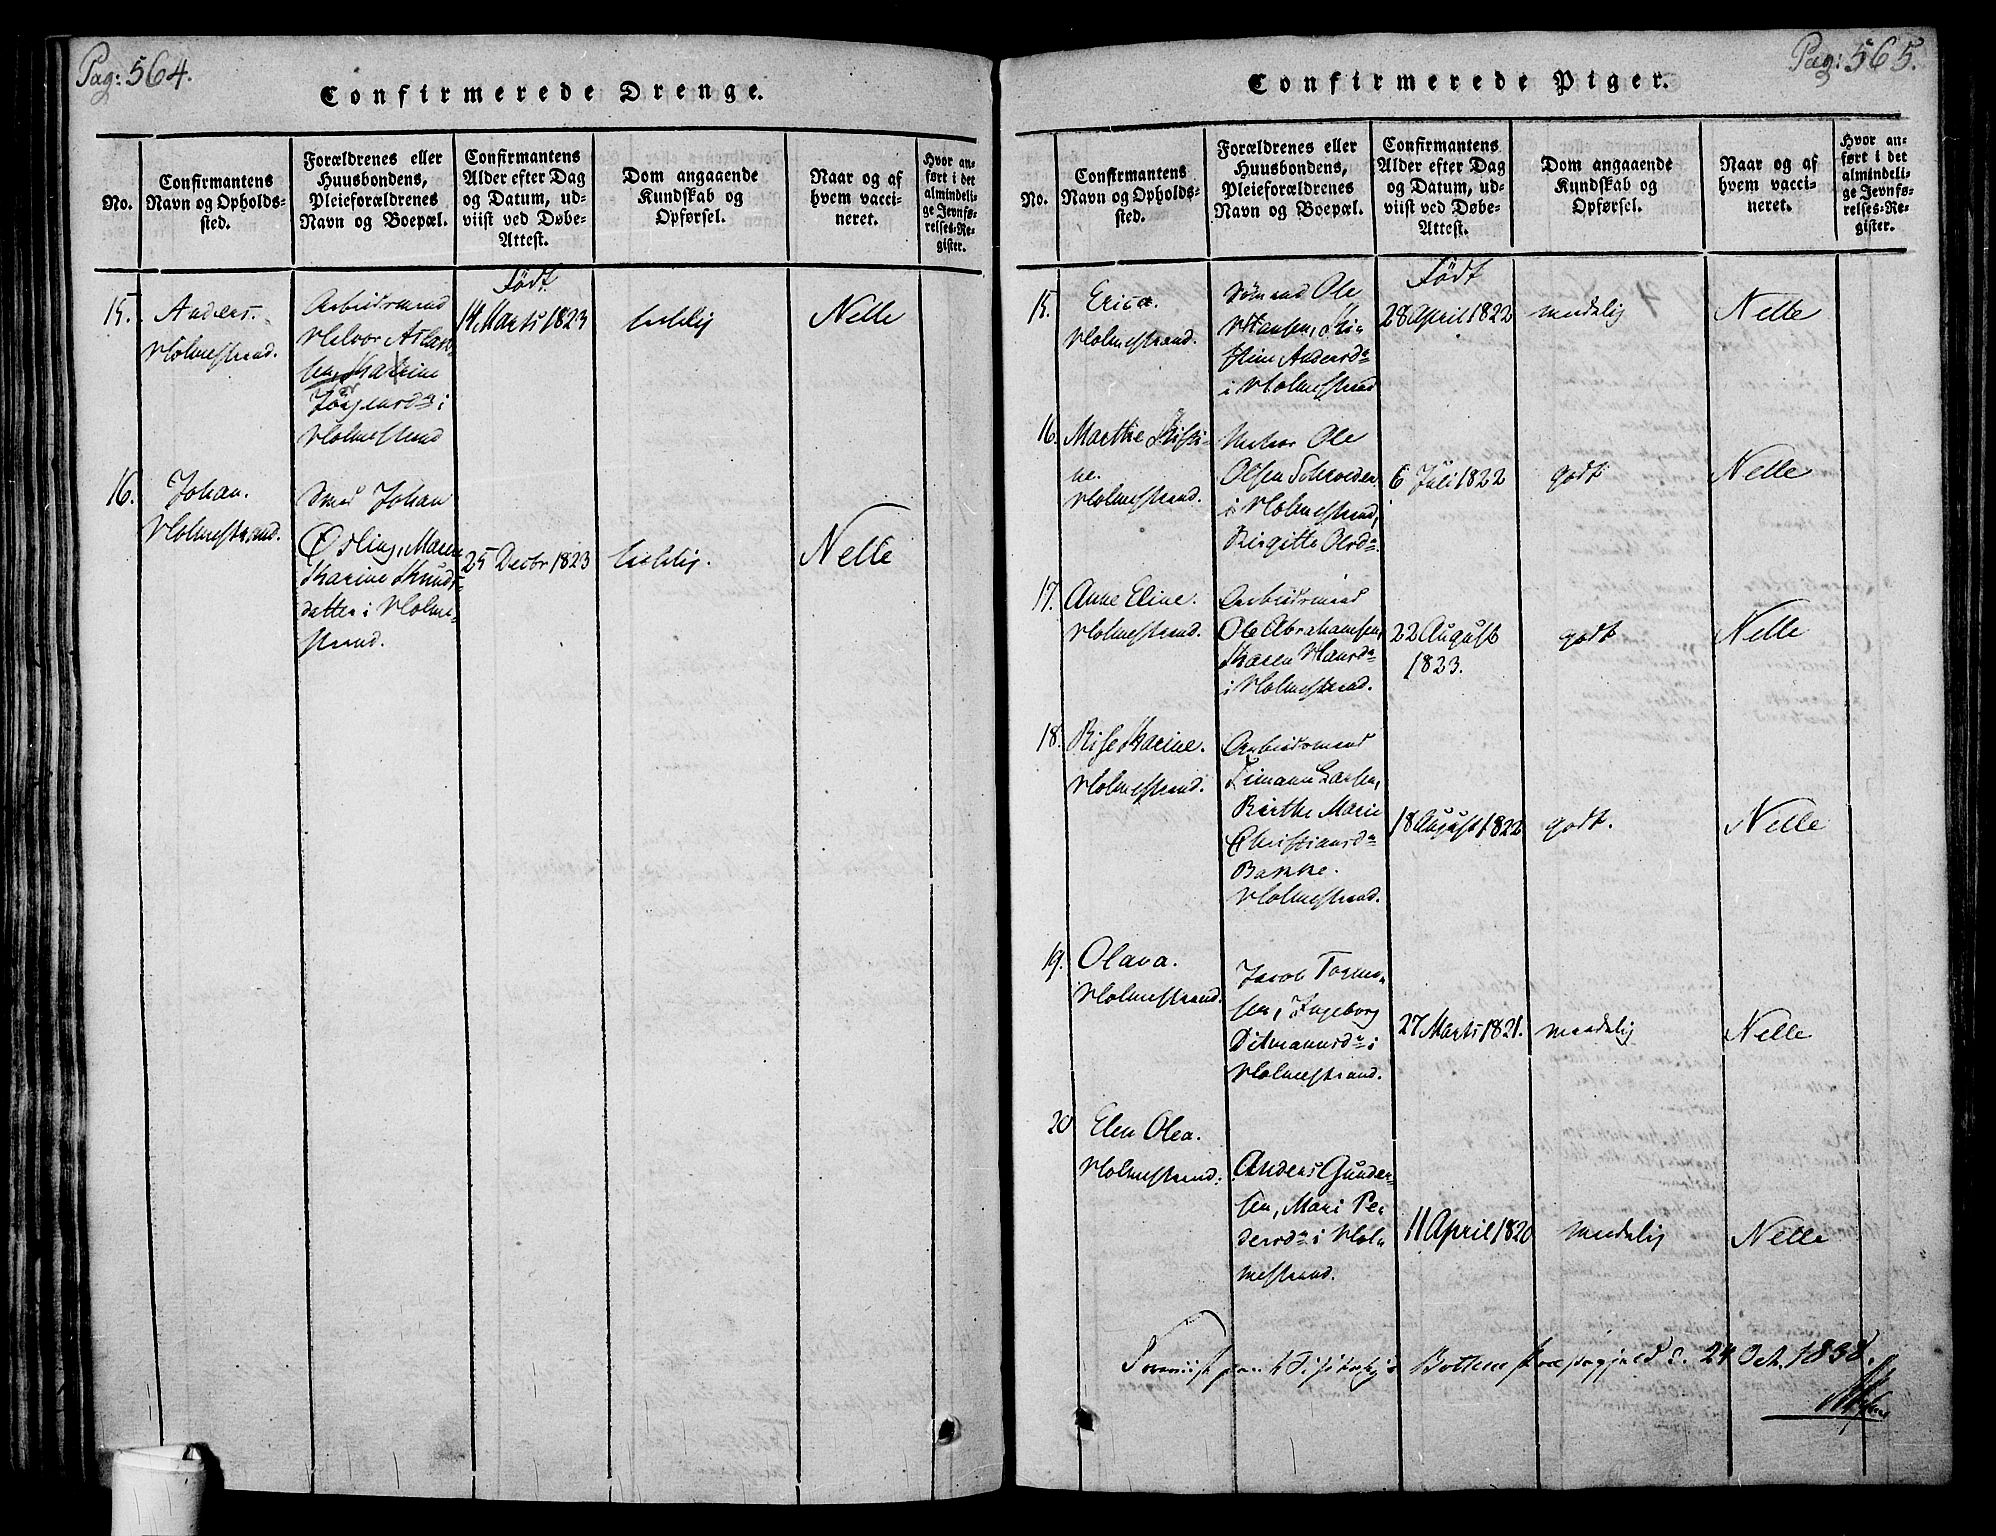 Pag: 564.
Confirmerede Drenge.
No.
Confirmantens
Navn og Opholds-
sted.
Forældrenes eller
Huusbondens,
Pleieforældrenes
Navn og Boepæl.
Confirmantens
Alder efter Dag
og Datum, ud-
viist ved Døbe-
Attest.
Dom angaaende
Kundskab og
Opførsel.
Naar og af
hvem vacci-
neret.
Hvor an-
ført i det
almindeli-
ge Jevnfø-
relses-Re-
gister.
Födt
15.
Anders.
Holmestrand.
Arbeidsmand
Halvor Aslak-
sen, Karine
Jörgensda i
Holmestrand
14 Marts 1823
Nelle
16.
Johan.
Holmestrand.
Smed Johan
Østling, Maren
Karine Knuds-
datter i Holme-
strand.
25 Decbr 1823
Nelle
Pag: 565.
Confirmerede Piger.
No.
Confirmantens
Navn og Opholds-
sted.
Forældrenes eller
Huusbondens,
Pleieforældrenes
Navn og Boepæl.
Confirmantens
Alder efter Dag
og Datum, ud-
viist ved Døbe-
Attest.
Dom angaaende
Kundskab og
Opførsel.
Naar og af
hvem vacci-
neret.
Hvor an-
ført i det
almindeli-
ge Jevnfø-
relses-Re-
gister.
Födt
15.
Erica.
Holmestrand.
Sömand Ole
Hansen, Kir
stine Andersda
i Holmestrand
28 April 1822
maadelig
Nelle
16.
Marthe Kirsti-
ne.
Holmestrand.
Ole
Olsen Schrøder
i Holmestrand,
Birgitte Olsda.
6 Juli 1822
godt
Nelle
17.
Anne Eline.
Holmestrand.
Arbeidsmand
Ole Abrahamsen,
Karen Hansda
i Holmestrand.
22 August
1823.
godt
Nelle
18.
Rise Karine.
Holmestrand.
Arbeidsmand
Timann Larsen,
Birthe Marie
Christiansda
Bakke.
Holmestrand.
18 August 1822
godt.
Nelle
19.
Olava.
Holmestrand.
Jacob Torme-
sen, Ingeborg
Ditmannsda i
Holmestrand.
27 Marts 1821.
maadelig
Nelle
20
Elen Olea.
Holmestrand.
Anders Gunder-
sen, Mari Pe-
dersda i Hol-
mestrand.
11 April 1820
maadelig
Nelle
Foreviist paa Visitats i Botne Præstegjeld d. 24 Oct. 1838.